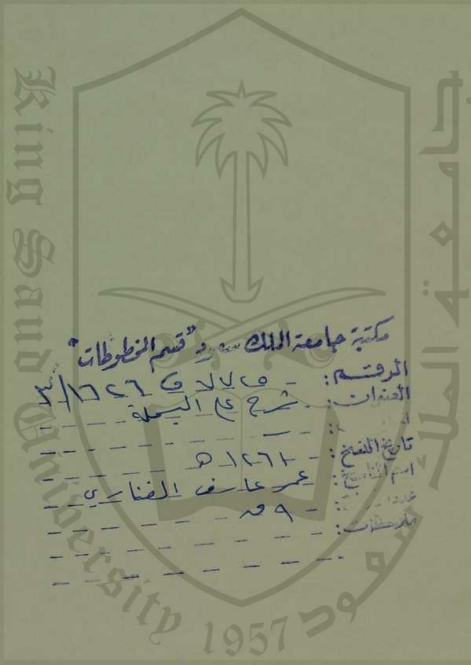 King Saud University
1957
مكتبة جامعة الملك سعود "قسم المخطوطات"
الرقم: ٧٧٢٥ ف ١٦٢٦/٣
العنوان: شرح على البسملة
تاريخ النسخ: ١٢٦١ هـ
اسم الناسخ: عمر عارف الفناري
٩ ق
ملاحظات: